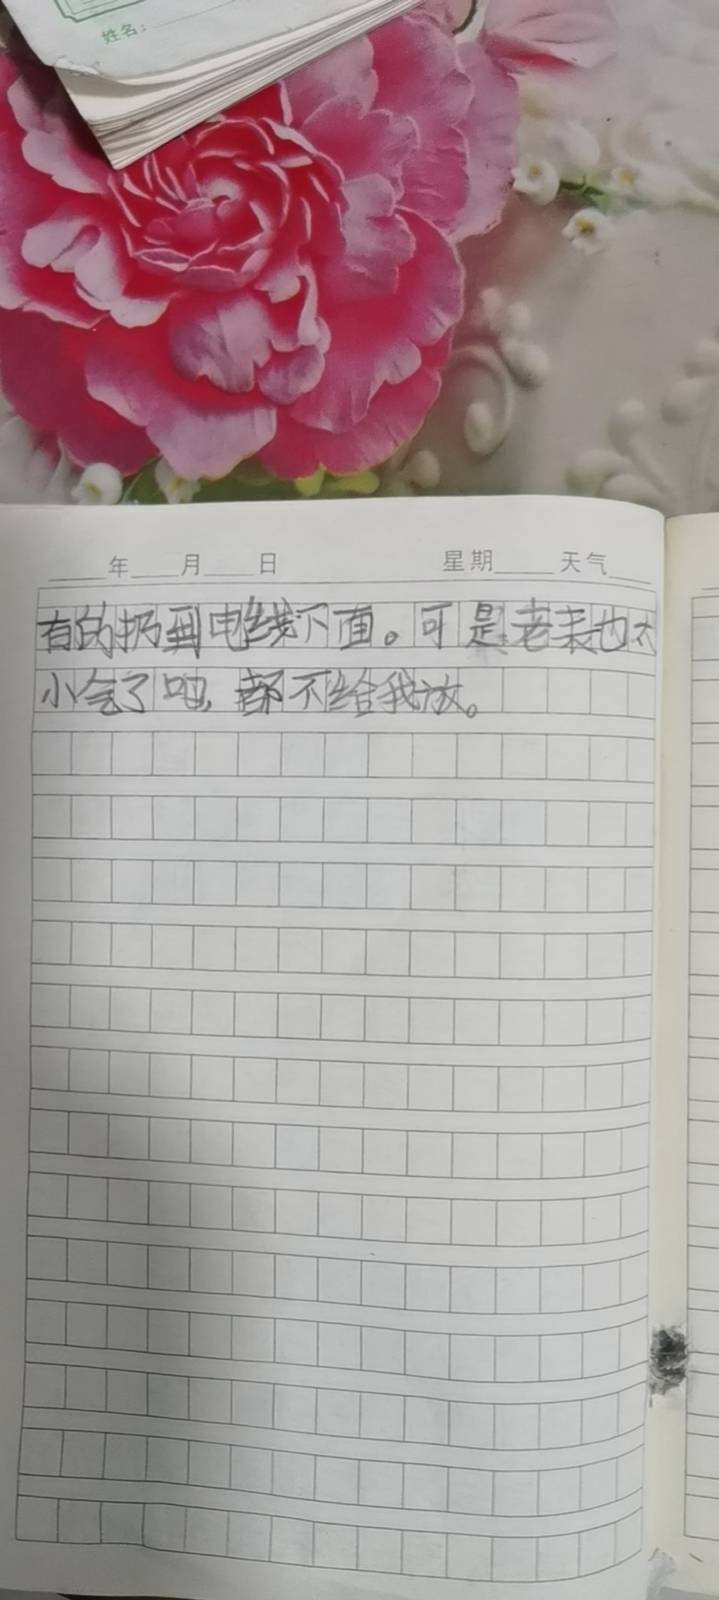 姓名:
年 月 日 星期 天气
有的扔到电线下面。可是老表也太
小气了吧,都不给我放。